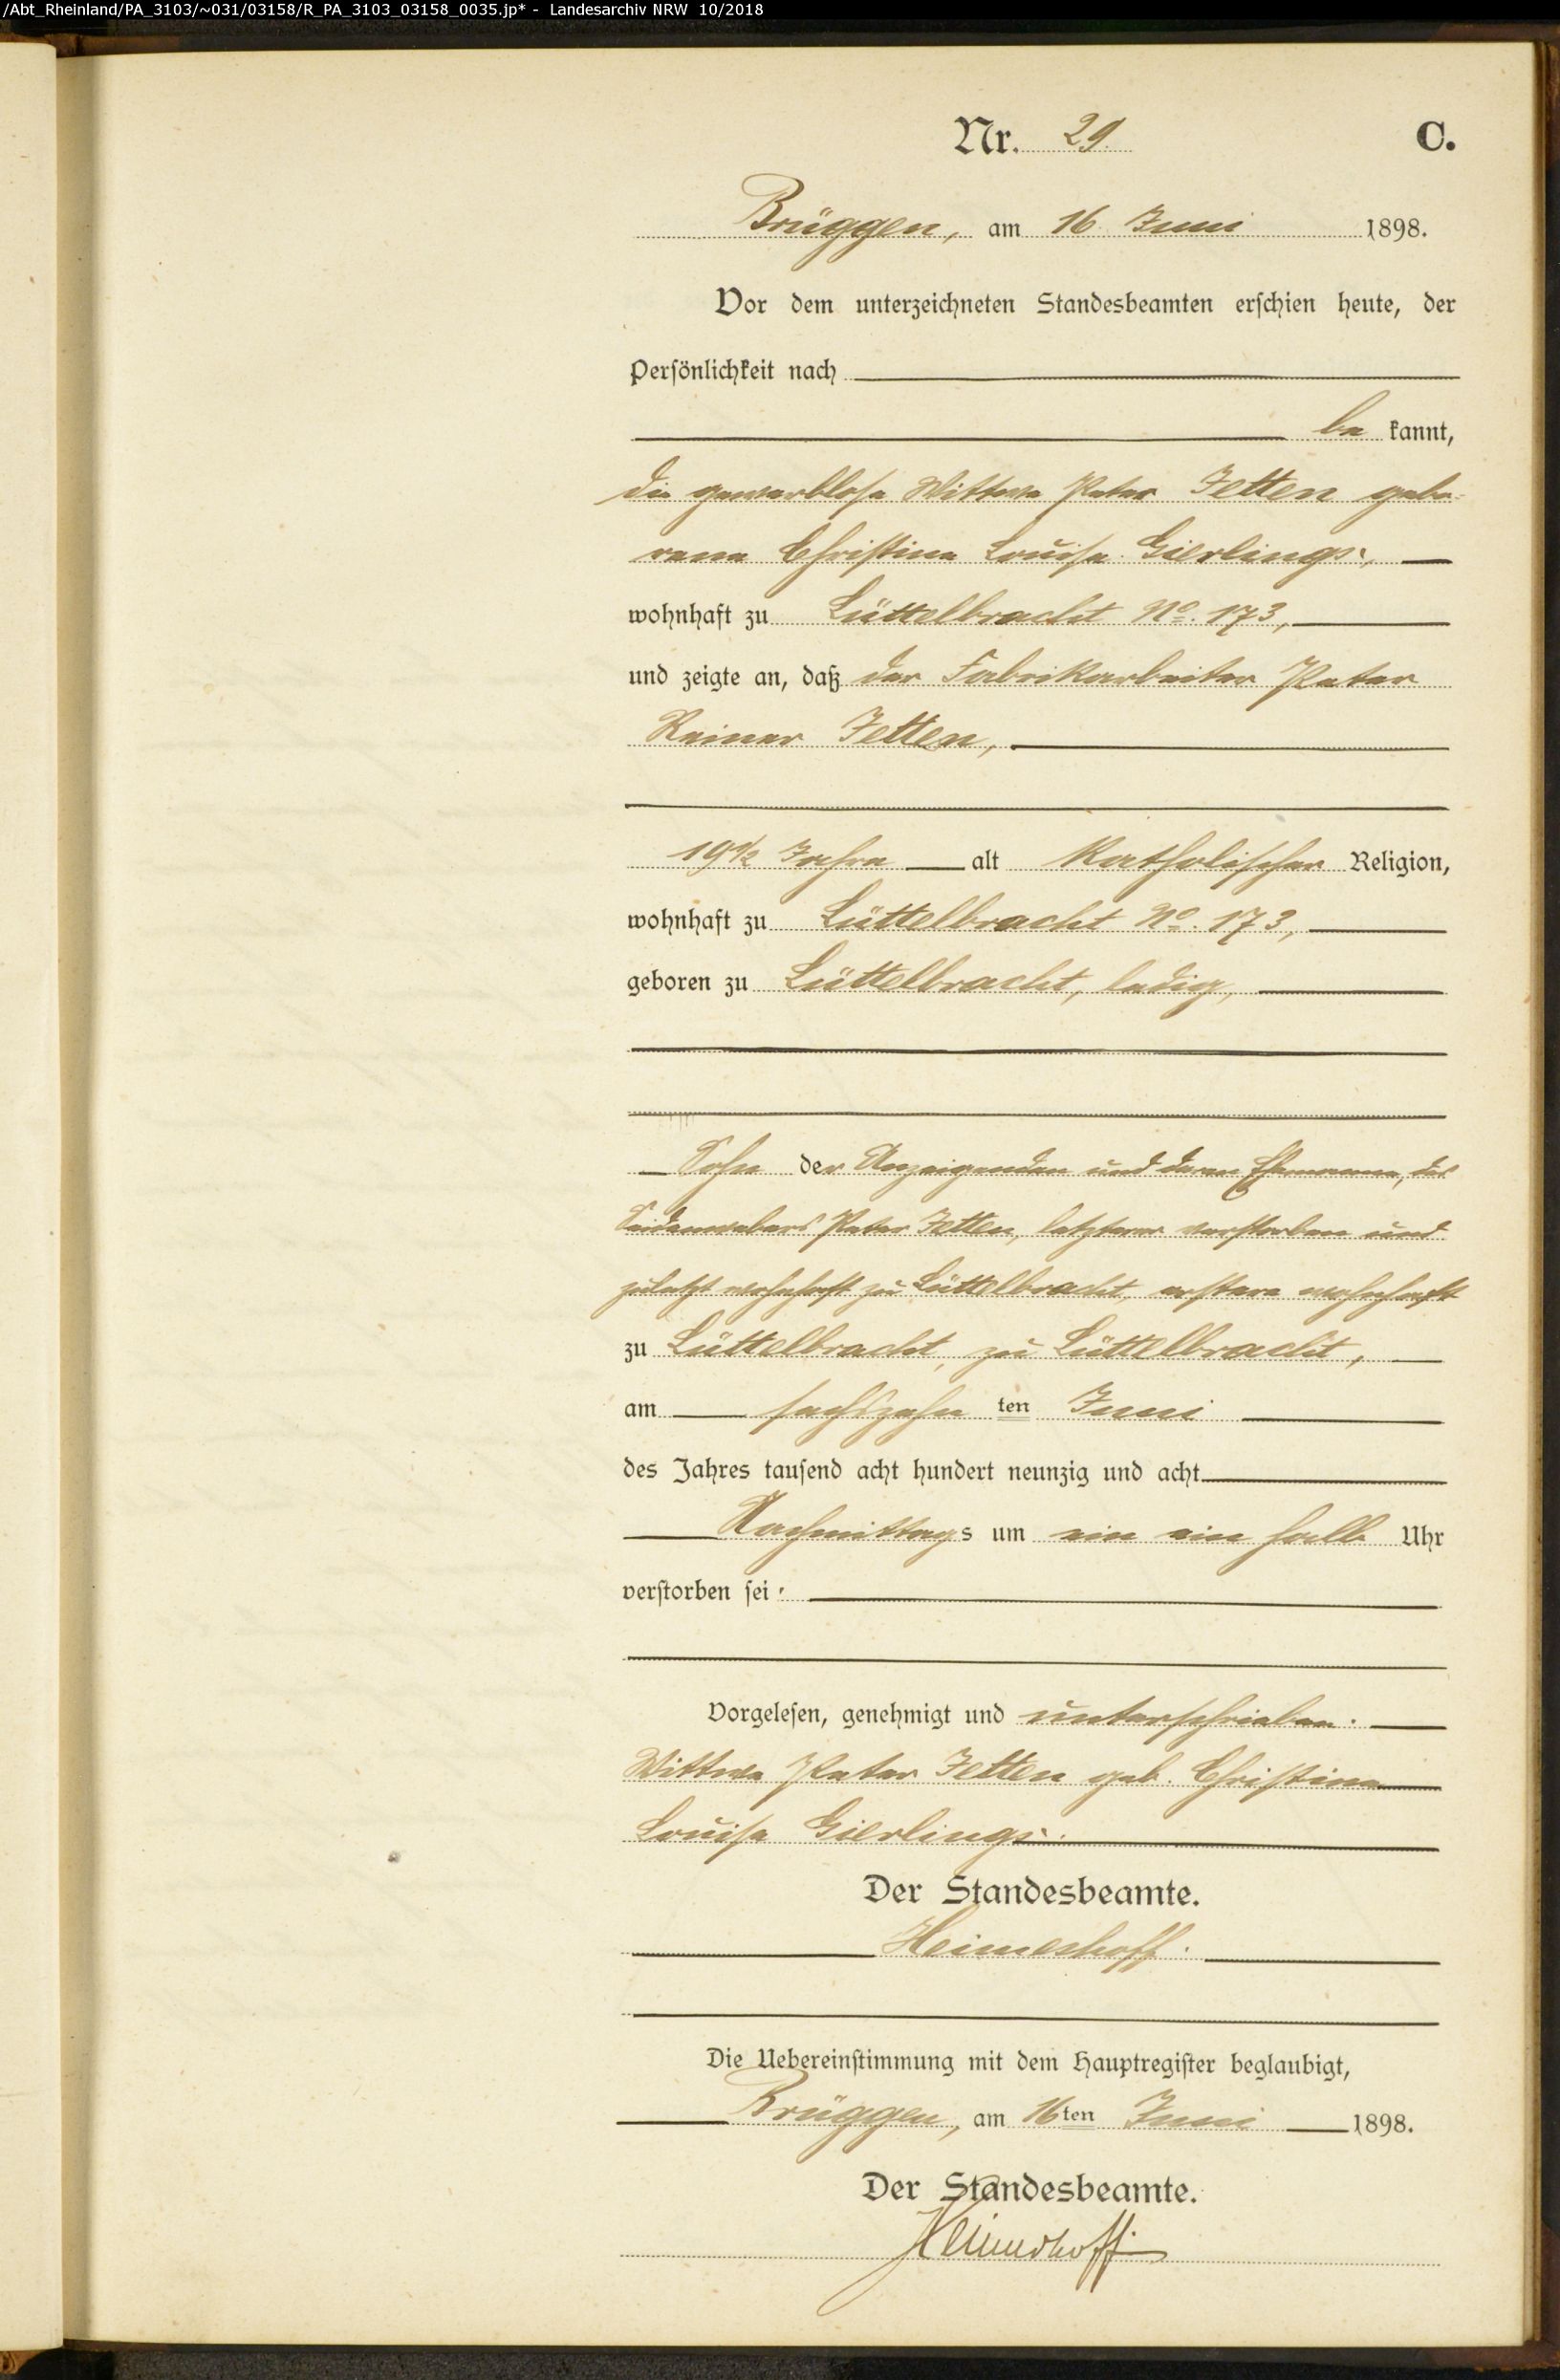 /Abt_Rheinland/PA_3103/~031/03158/R_PA_3103_03158_0035.jp* - Landesarchiv NRW 10/2018
Nr. 29. C.
Brüggen, am 16 Juni 1898.
Vor dem unterzeichneten Standesbeamten erschien heute, der
Persönlichkeit nach
be kannt,
die gewerblose Wittwe Peter Jetten gebo-
rene Christina Louise Gierlings,
wohnhaft zu Lüttelbracht No. 173,
und zeigte an, daß der Fabrikarbeiter Peter
Reiner Jetten,
19½ Jahre alt katholischer Religion,
wohnhaft zu Lüttelbracht No. 173,
geboren zu Lüttelbracht, ledig,
Sohn der Anzeigenden und deren Ehemann, des
Seidenwebers Peter Jetten, letzterer verstorben und
zuletzt wohnhaft zu Lüttelbracht, erstere wohnhaft
zu Lüttelbracht, zu Lüttelbracht,
am sechszehn ten Juni
des Jahres tausend acht hundert neunzig und acht
Nachmittags um ein ein halb Uhr
verstorben sei.
Vorgelesen, genehmigt und unterschrieben.
Wittwe Peter Jetten geb. Christina
Louise Gierlings.
Der Standesbeamte.
Heimeshoff.
Die Uebereinstimmung mit dem Hauptregister beglaubigt,
Brüggen, am 16ten Juni 1898.
Der Standesbeamte.
Heimeshoff.